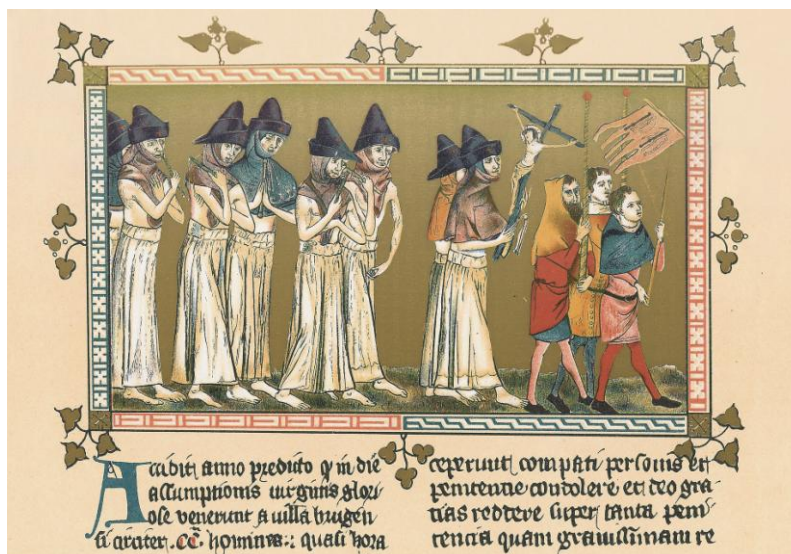 Accidit anno predicto q̄ in die
assumptionis uirginis glori
ose venerunt a uilla brugen
si circiter .CC. homines : quasi hora
ceperunt compati personis et
penitentie condolere et deo gra
tias reddere super tanta peni
tencia quam grauissimam re